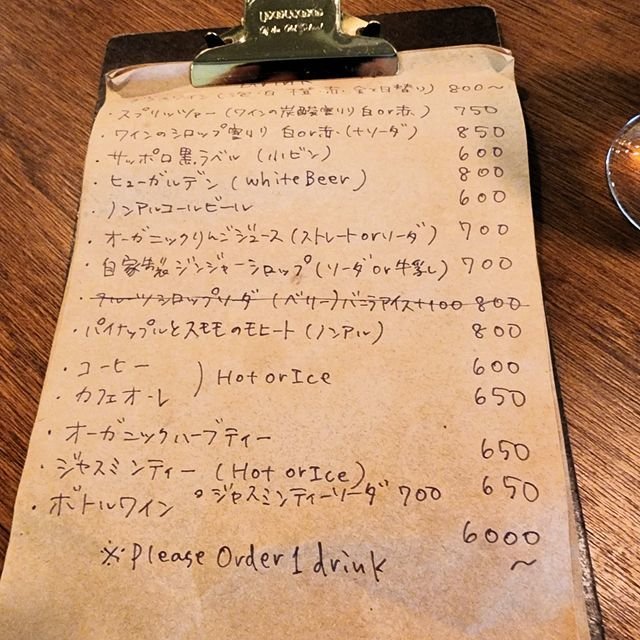 ワイン(泡・白・橙・赤・全て日替り) 800〜
・スプリッツァー(ワインの炭酸割り 白or赤) 750
・ワインのシロップ割り 白or赤(+ソーダ) 850
・サッポロ黒ラベル(小ビン) 600
・ヒューガルデン(White Beer) 800
・ノンアルコールビール 600
・オーガニックりんごジュース(ストレートorソーダ) 700
・自家製ジンジャーシロップ(ソーダor牛乳) 700
・フルーツシロップソーダ(ベリー)バニラアイス+100 800
・パイナップルとスモモのモヒート(ノンアル) 800
・コーヒー 600
・カフェオーレ ) Hot or Ice 650
・オーガニックハーブティー 650
・ジャスミンティー(Hot or Ice) 650
°ジャスミンティーソーダ 700
・ボトルワイン 6000〜
※Please Order 1 drink